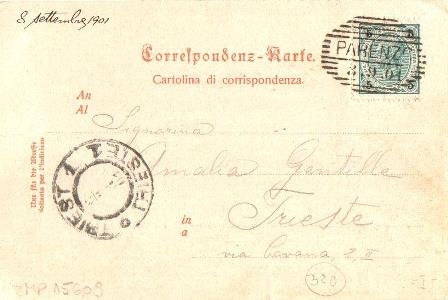 8 settembre 1901
Correspondenz-Karte.
Cartolina di corrispondenza.
PARENZO
8 9 01
5 5
An
Al
Signorina
Amalia Gentille
in
a
Trieste
via Cavana, 2, II
Nur für die Adresse
soltanto per l'indirizzo
TRIEST 1 TRIESTE 1
320
ZMP 15609